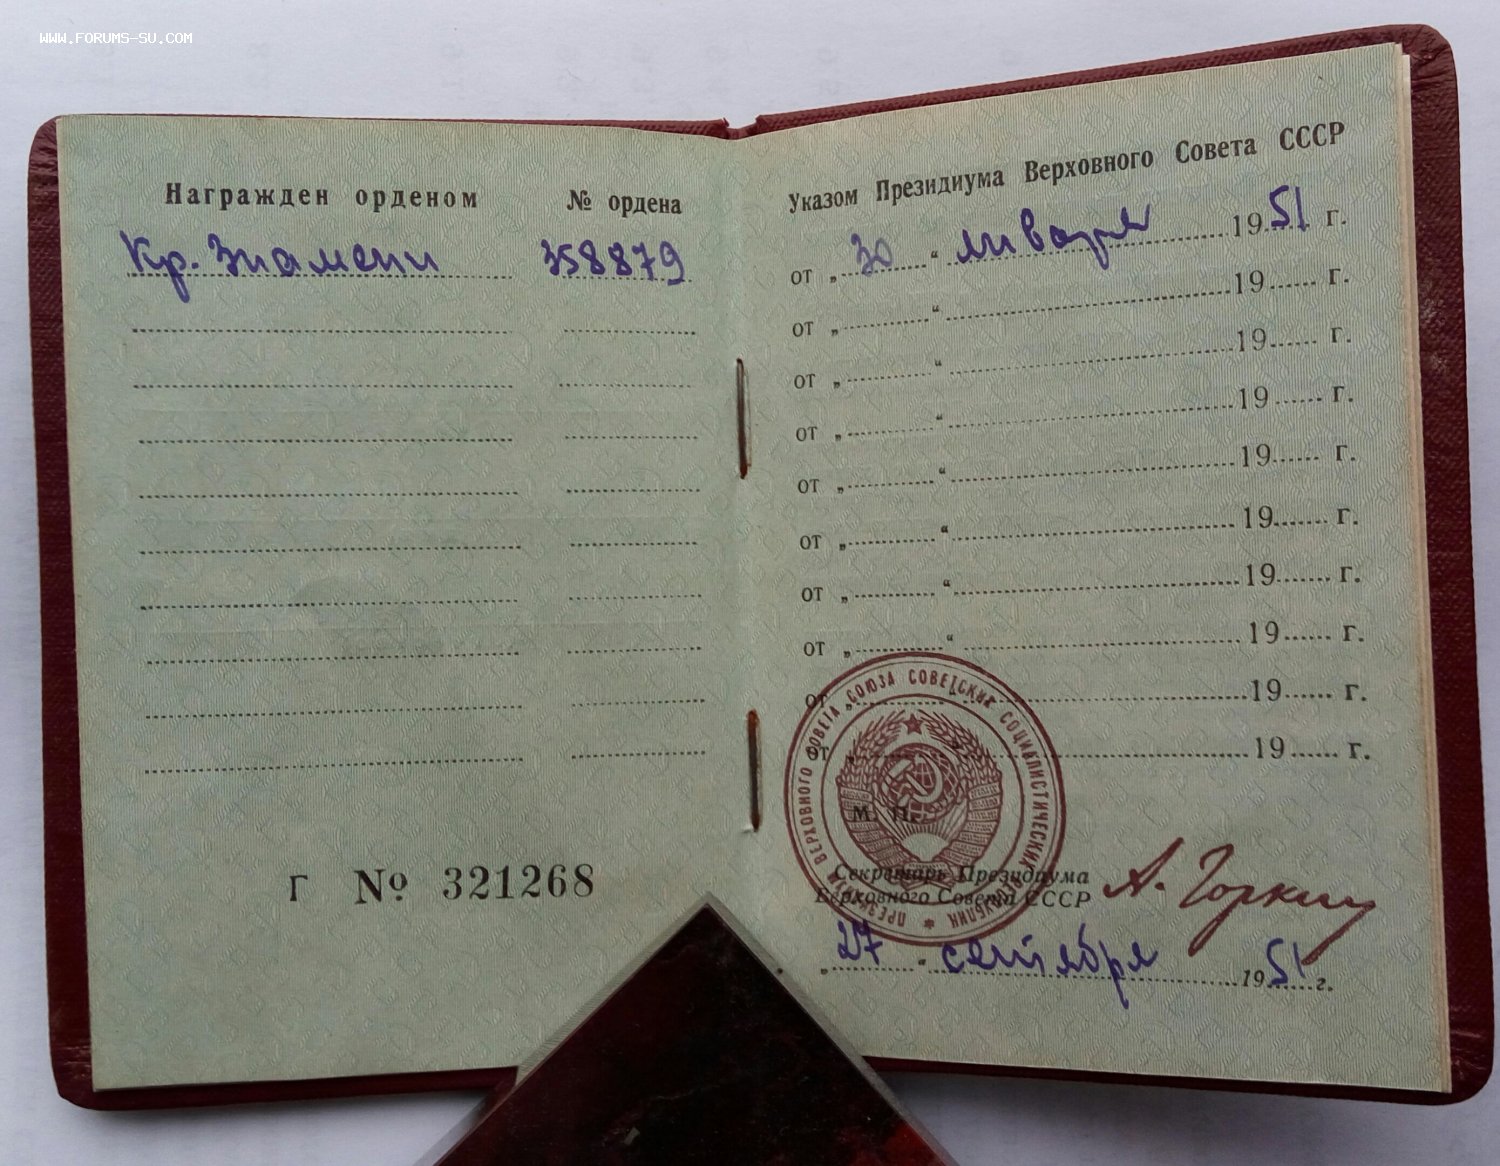 WWW.FORUMS-SU.COM
Награжден орденом № ордена
Кр. Знамени 358879
Г № 321268
Указом Президиума Верховного Совета СССР
от „30“ января 1951 г.
от „ “ 19 г.
от „ “ 19 г.
от „ “ 19 г.
от „ “ 19 г.
от „ “ 19 г.
от „ “ 19 г.
от „ “ 19 г.
от „ “ 19 г.
от „ “ 19 г.
ПРЕЗИДИУМ ВЕРХОВНОГО СОВЕТА СОЮЗА СОВЕТСКИХ СОЦИАЛИСТИЧЕСКИХ РЕСПУБЛИК
М. П.
Секретарь Президиума
Верховного Совета СССР А. Горкин
„27“ сентября 1951 г.